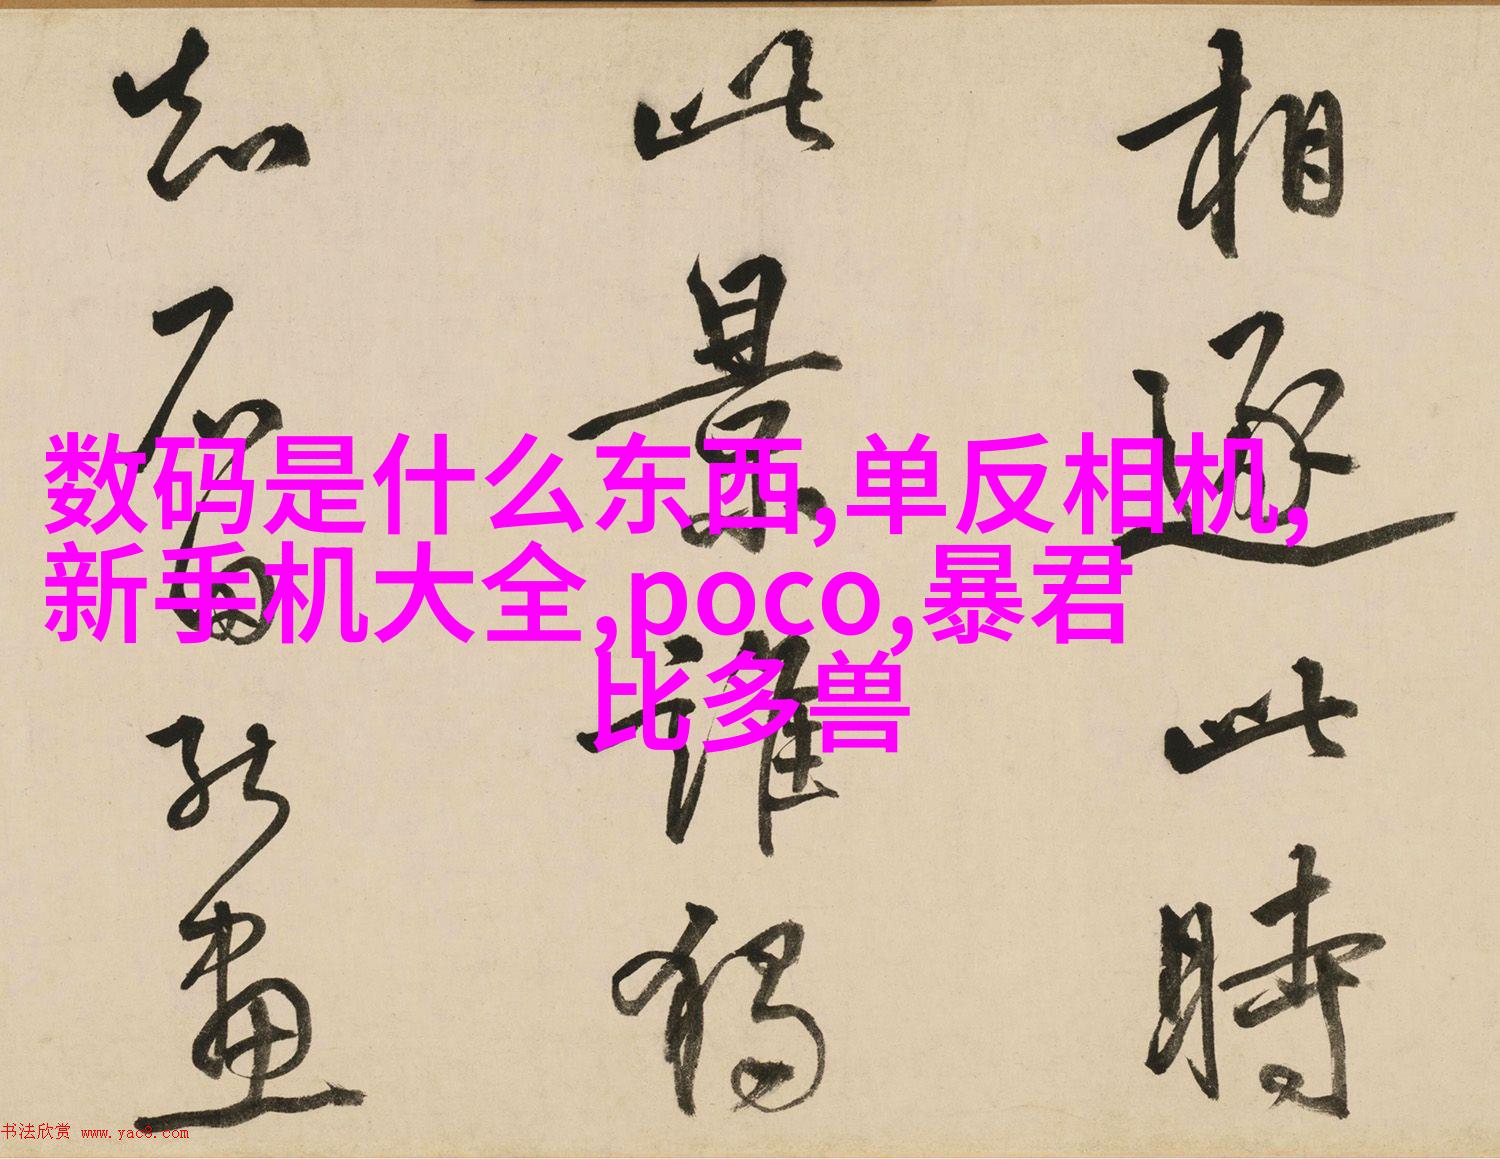 相逐此時
此景誰獨
知石屏能畫
数码是什么东西,单反相机,
新手机大全,poco,暴君
比多兽
书法欣赏 www.yac8.com